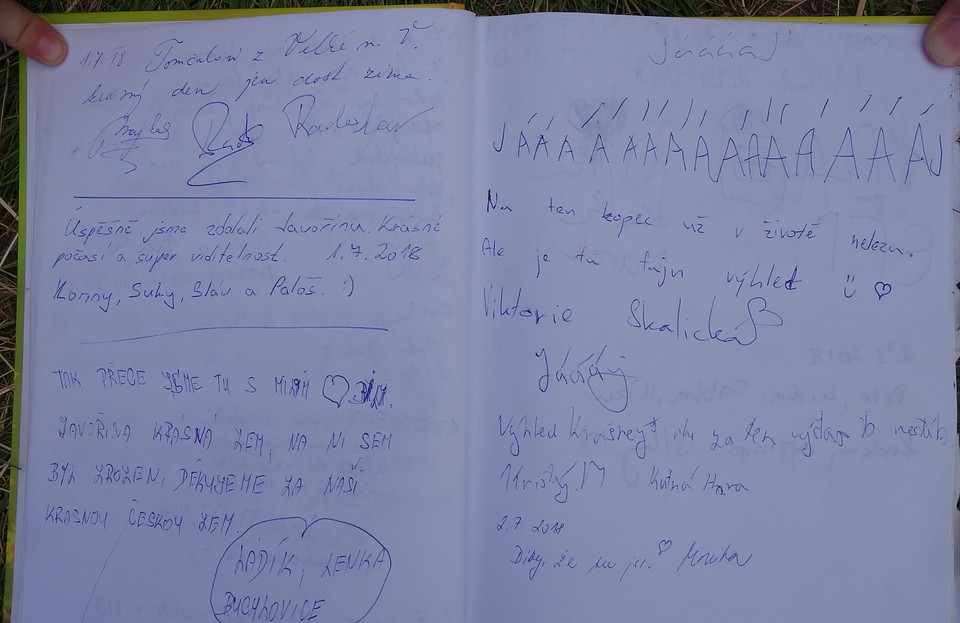 1.7.18 Tomčalovi z Velké n. V.
krásný den jen dost zima.
Radoslav
Úspěšně jsme zdolali Javořinu. Krásné
počasí a super viditelnost. 1.7.2018
Konny, Suky, Sláv a Paloš. :)
TAK PŘECE JSME TU S MILÝM ♡
JAVOŘINA KRÁSNÁ ZEM, NA NÍ SEM
BYL ZROZEN, DĚKUJEME ZA NAŠI
KRÁSNOU ČESKOU ZEM.
LADÍK, LENKA
BUCHLOVICE
JÁÁÁÁÁÁÁÁÁÁÁÁÁÁJ
Na ten kopec už v životě nelezu.
Ale je tu fajn výhled ü ♡
Viktorie Skalická
Jááááj
Výhled za ten
Kutná Hora
2.7 2018
Díky, že tu jsi. ♡ Monika